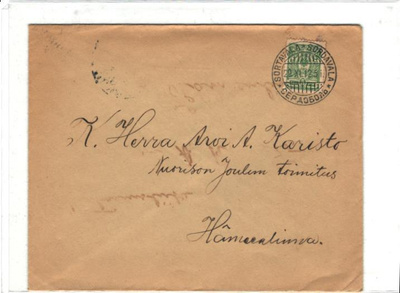 SORTAVALA * SORDAVALA
* СЕРДОБОЛЬ *
K. Herra Arvi A. Karisto
Nuorison Joulun toimitus
Hämeenlinna.